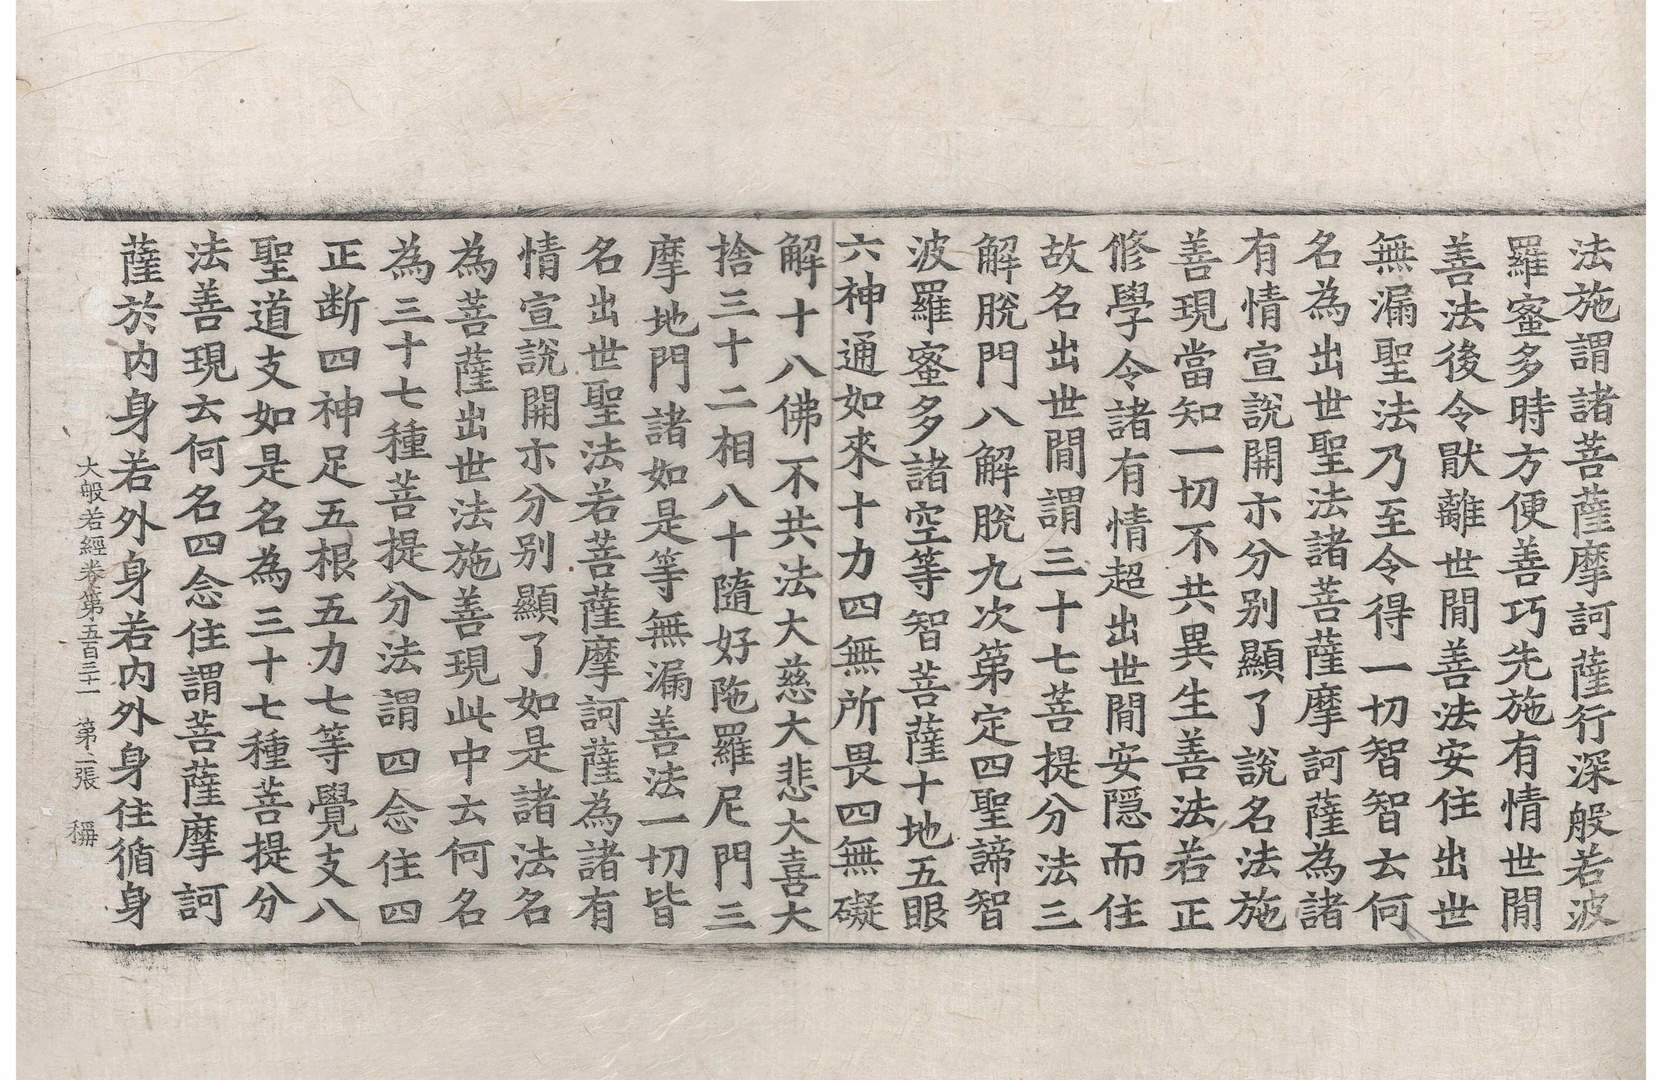 法施謂諸菩薩摩訶薩行深般若波
羅蜜多時方便善巧先施有情世間
善法後令猒離世間善法安住出世
無漏聖法乃至令得一切智智云何
名為出世聖法諸菩薩摩訶薩為諸
有情宣說開示分別顯了說名法施
善現當知一切不共異生善法若正
修學令諸有情超出世間安隱而住
故名出世間謂三十七菩提分法三
解脫門八解脫九次第定四聖諦智
波羅蜜多諸空等智菩薩十地五眼
六神通如來十力四無所畏四無礙
解十八佛不共法大慈大悲大喜大
捨三十二相八十隨好陁羅尼門三
摩地門諸如是等無漏善法一切皆
名出世聖法若菩薩摩訶薩為諸有
情宣說開示分別顯了如是諸法名
為菩薩出世法施善現此中云何名
為三十七種菩提分法謂四念住四
正断四神足五根五力七等覺支八
聖道支如是名為三十七種菩提分
法善現云何名四念住謂菩薩摩訶
薩於內身若外身若內外身住循身
大般若經卷第五百三十一 第二張 稱